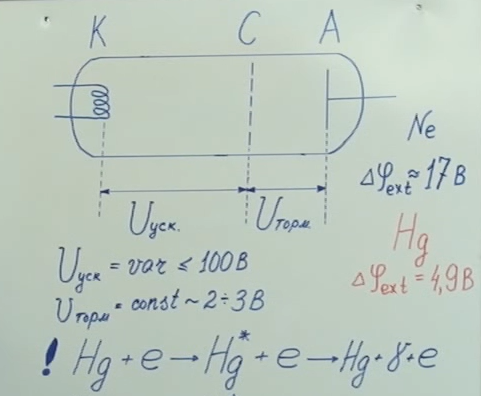 K C A
Ne
Δφext ≈ 17 В
Uуск. Uторм.
Hg
Δφext = 4,9 В
Uуск = var ≤ 100 В
Uторм = const ~ 2÷3 В
! Hg + e → Hg* + e → Hg + γ + e